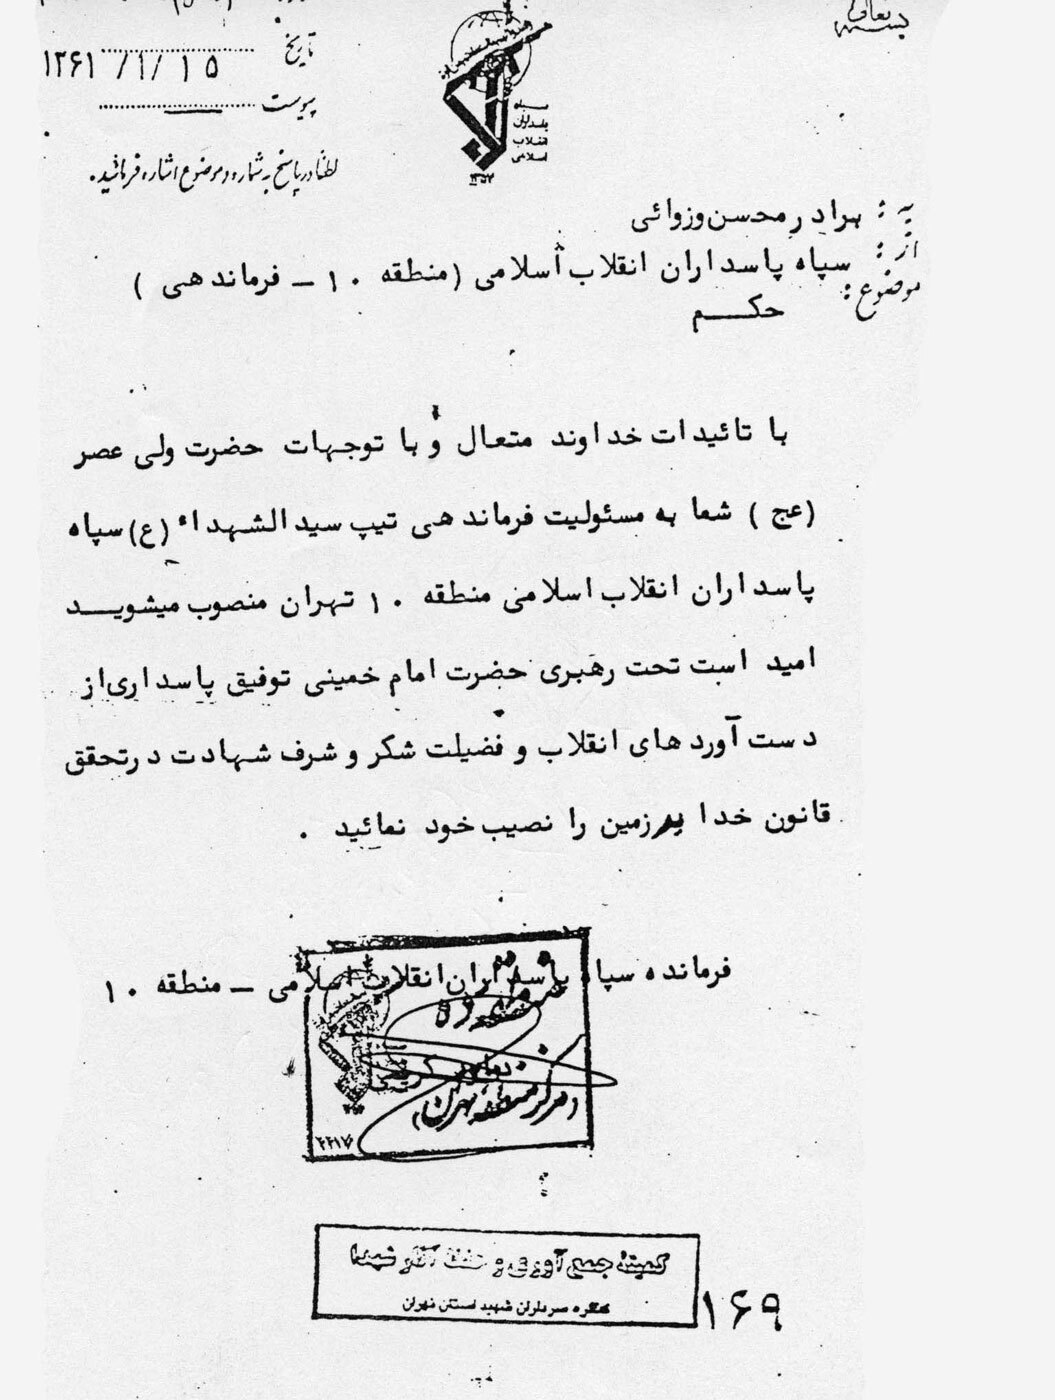 بسمه تعالی
تاریخ ۱۳۶۱/۱/۱۵
پیوست
لطفاً در پاسخ به شماره و موضوع اشاره فرمائید.
سپاه
پاسداران
انقلاب
اسلامی
۱۳۵۷
به : برادر محسن وزوائی
از : سپاه پاسداران انقلاب اسلامی (منطقه ۱۰ ـ فرماندهی )
موضوع : حکم
با تائیدات خداوند متعال و با توجهات حضرت ولی عصر
(عج ) شما به مسئولیت فرماندهی تیپ سیدالشهداء (ع) سپاه
پاسداران انقلاب اسلامی منطقه ۱۰ تهران منصوب میشوید
امید است تحت رهبری حضرت امام خمینی توفیق پاسداری از
دست آوردهای انقلاب و فضیلت شکر و شرف شهادت درتحقق
قانون خدا برزمین را نصیب خود نمائید .
فرمانده سپاه پاسداران انقلاب اسلامی ـ منطقه ۱۰
منطقه ده
(مرکز منطقه تهران)
۲۲۱۷
کمیته جمع آوری و حفظ آثار شهدا
کنگره سرداران شهید استان تهران
۱۶۹